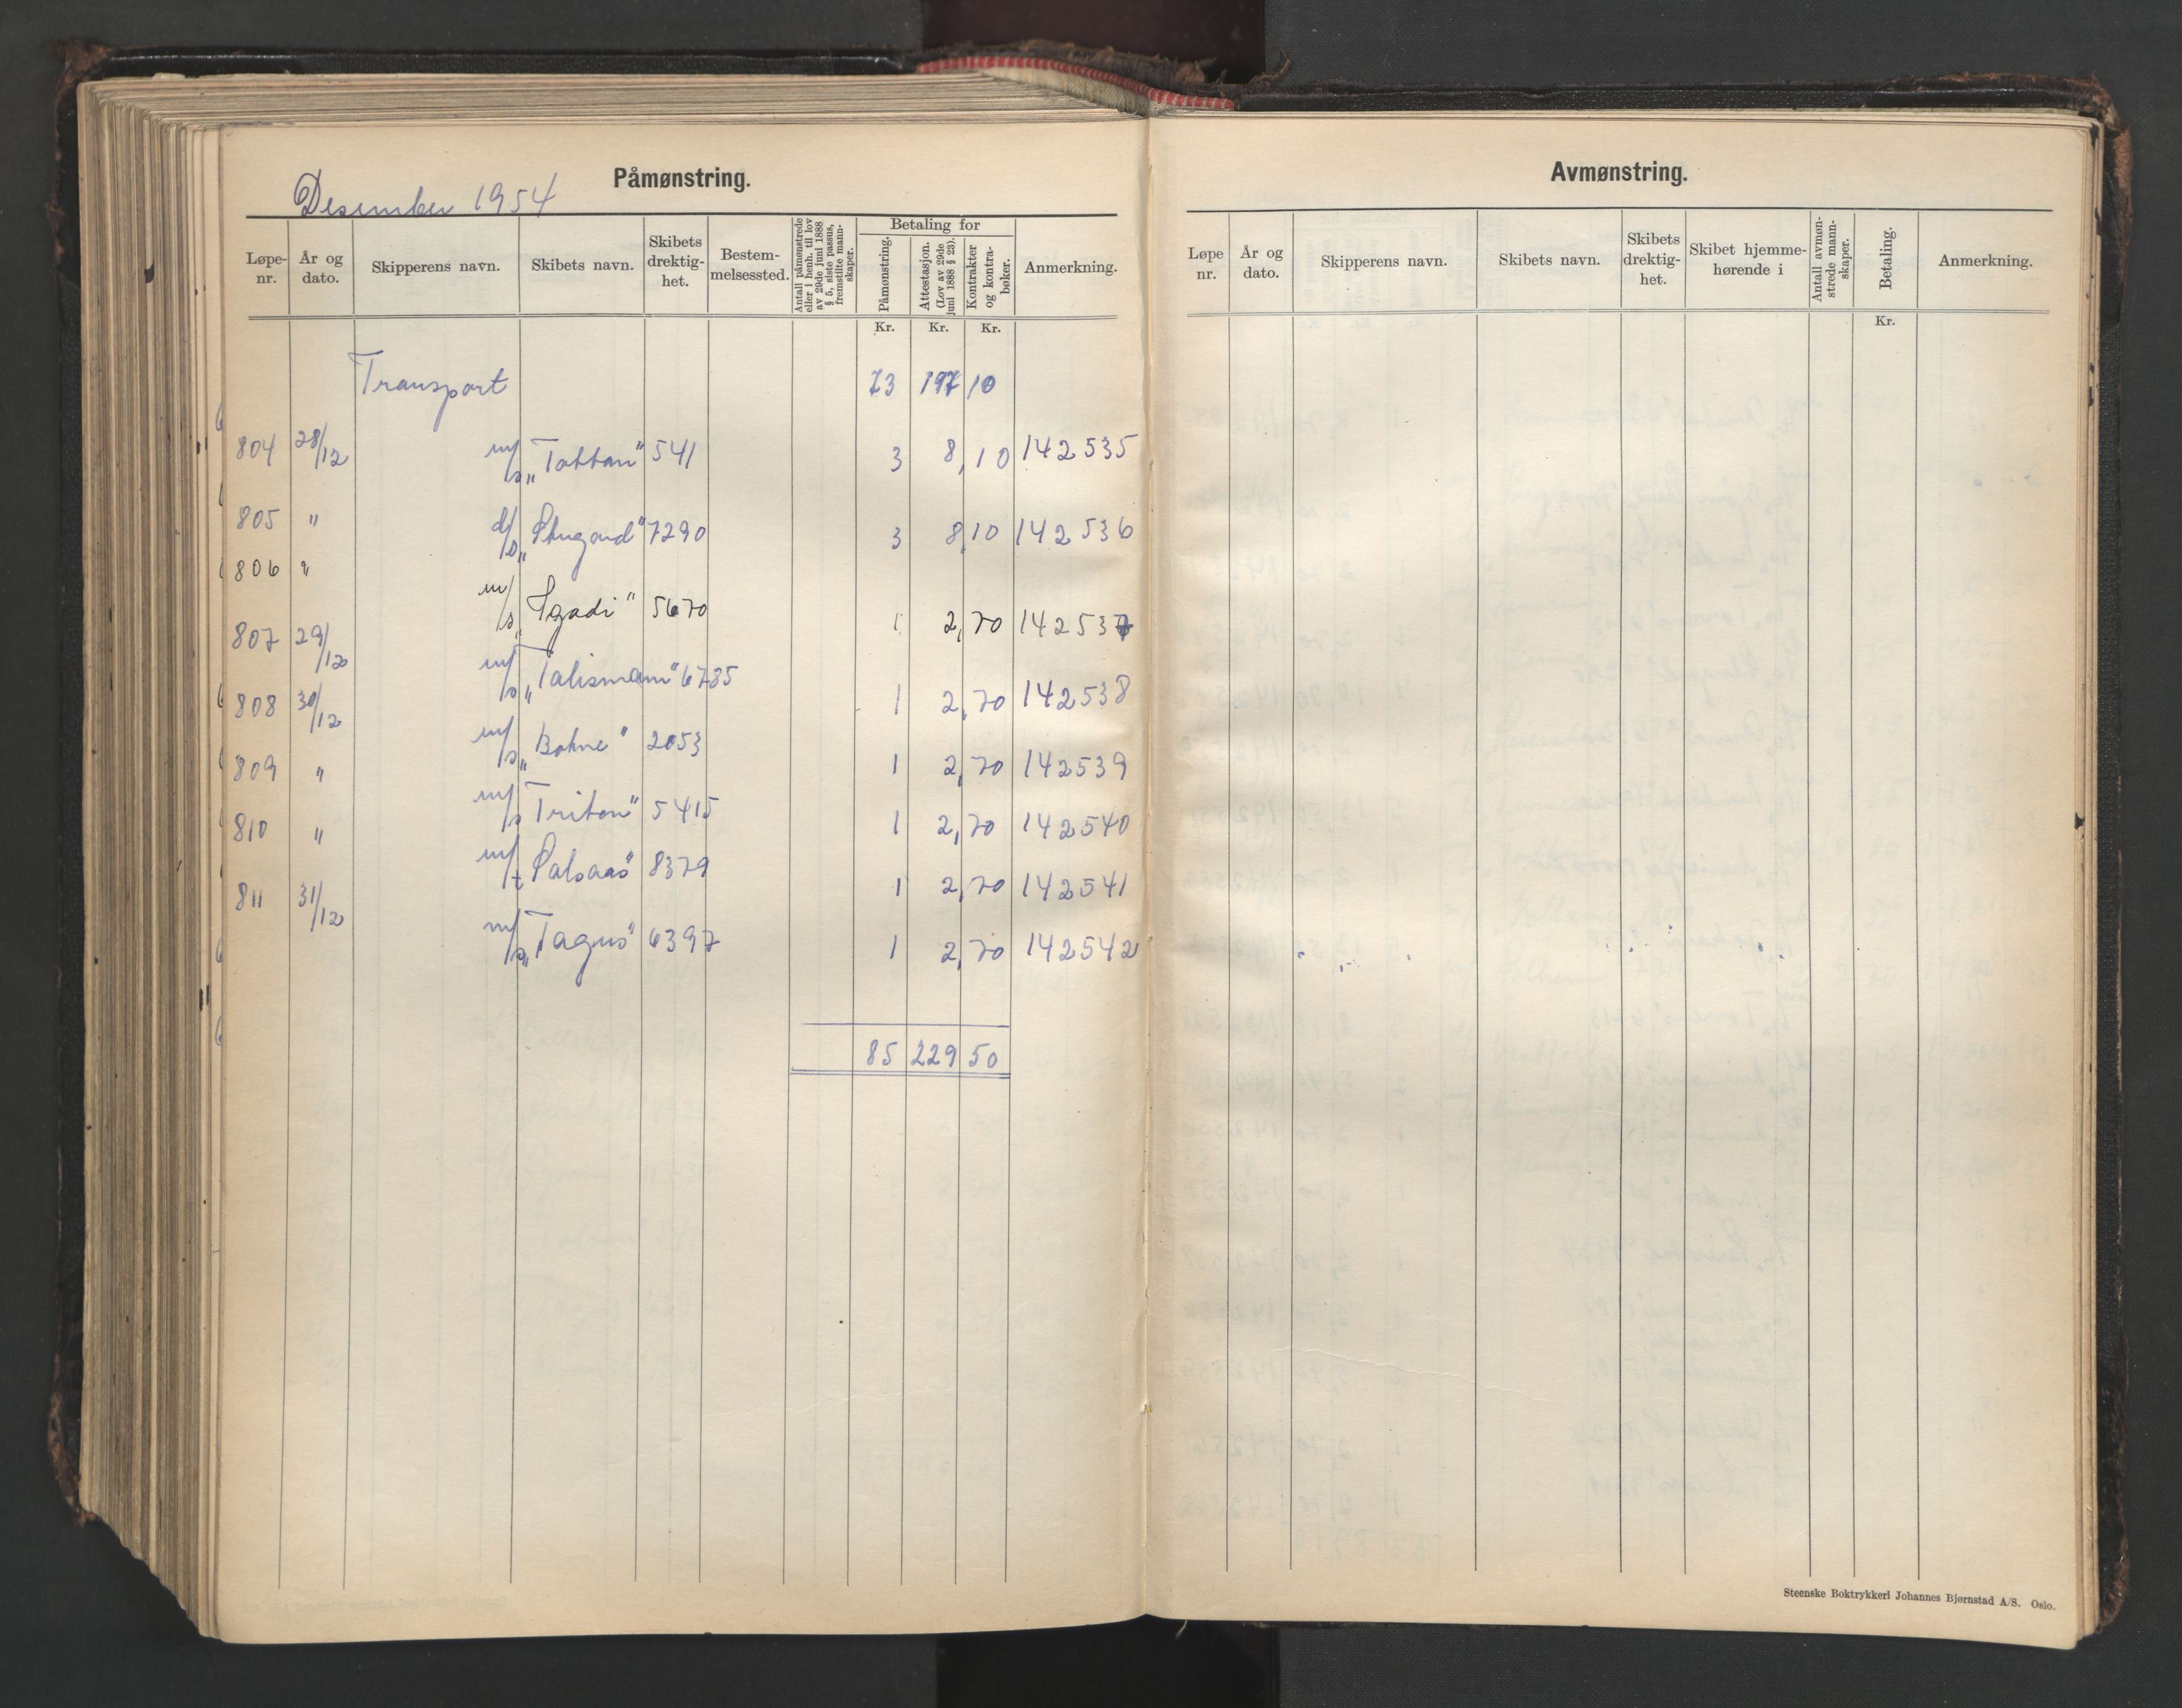 Desember 1954
Påmønstring.
Løpe-nr.
År og dato.
Skipperens navn.
Skibets navn.
Skibets drektig-het.
Bestem-melsessted.
Antall påmønstrede eller i henh. til lov av 29de juni 1888 § 5, siste passus, fremstilte mann-skaper.
Betaling for
Påmønstring.
Attestasjon. (Lov av 29de juni 1888 § 23).
Kontrakter og kontra-bøker.
Anmerkning.
Kr. Kr. Kr.
Transport 73 197 10
804 28/12 m/s „Tottan" 541 3 8,10 142535
805 " d/s 7290 3 8,10 142536
806 " m/s 5670 1 2,70 142537
807 29/12 m/s „Talisman" 6785 1 2,70 142538
808 30/12 m/s „Bohne" 2053 1 2,70 142539
809 " m/s Triton" 5415 1 2,70 142540
810 " m/t 8379 1 2,70 142541
811 31/12 m/s „Tagus" 6397 1 2,70 142542
85 229 50
Avmønstring.
Løpe nr.
År og dato.
Skipperens navn.
Skibets navn.
Skibets drektig-het.
Skibet hjemme-hørende i
Antall avmøn-strede mann-skaper.
Betaling.
Anmerkning.
Kr.
Steenske Boktrykkeri Johannes Bjørnstad A/S. Oslo.